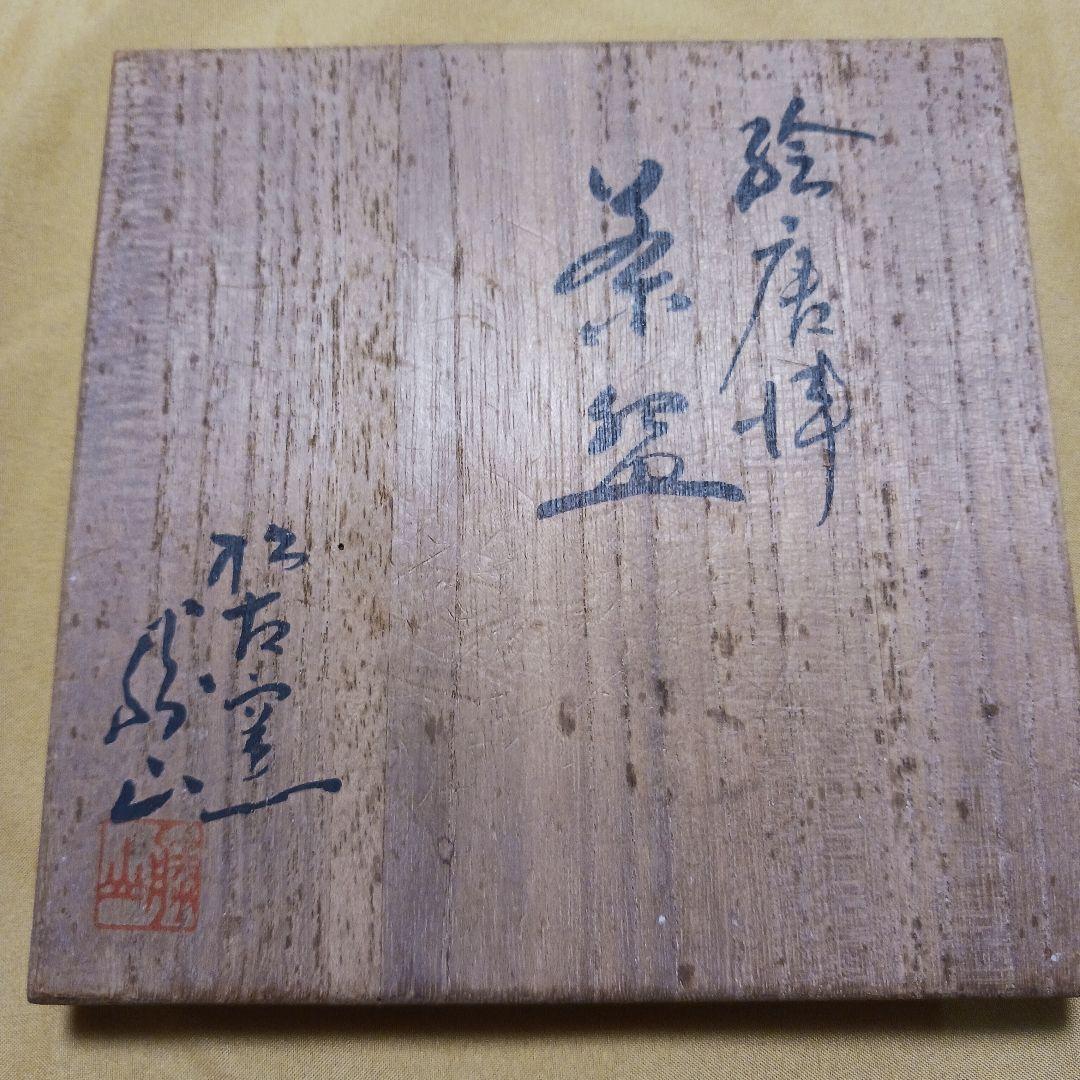 絵唐津
茶盌
松古窯
勝山